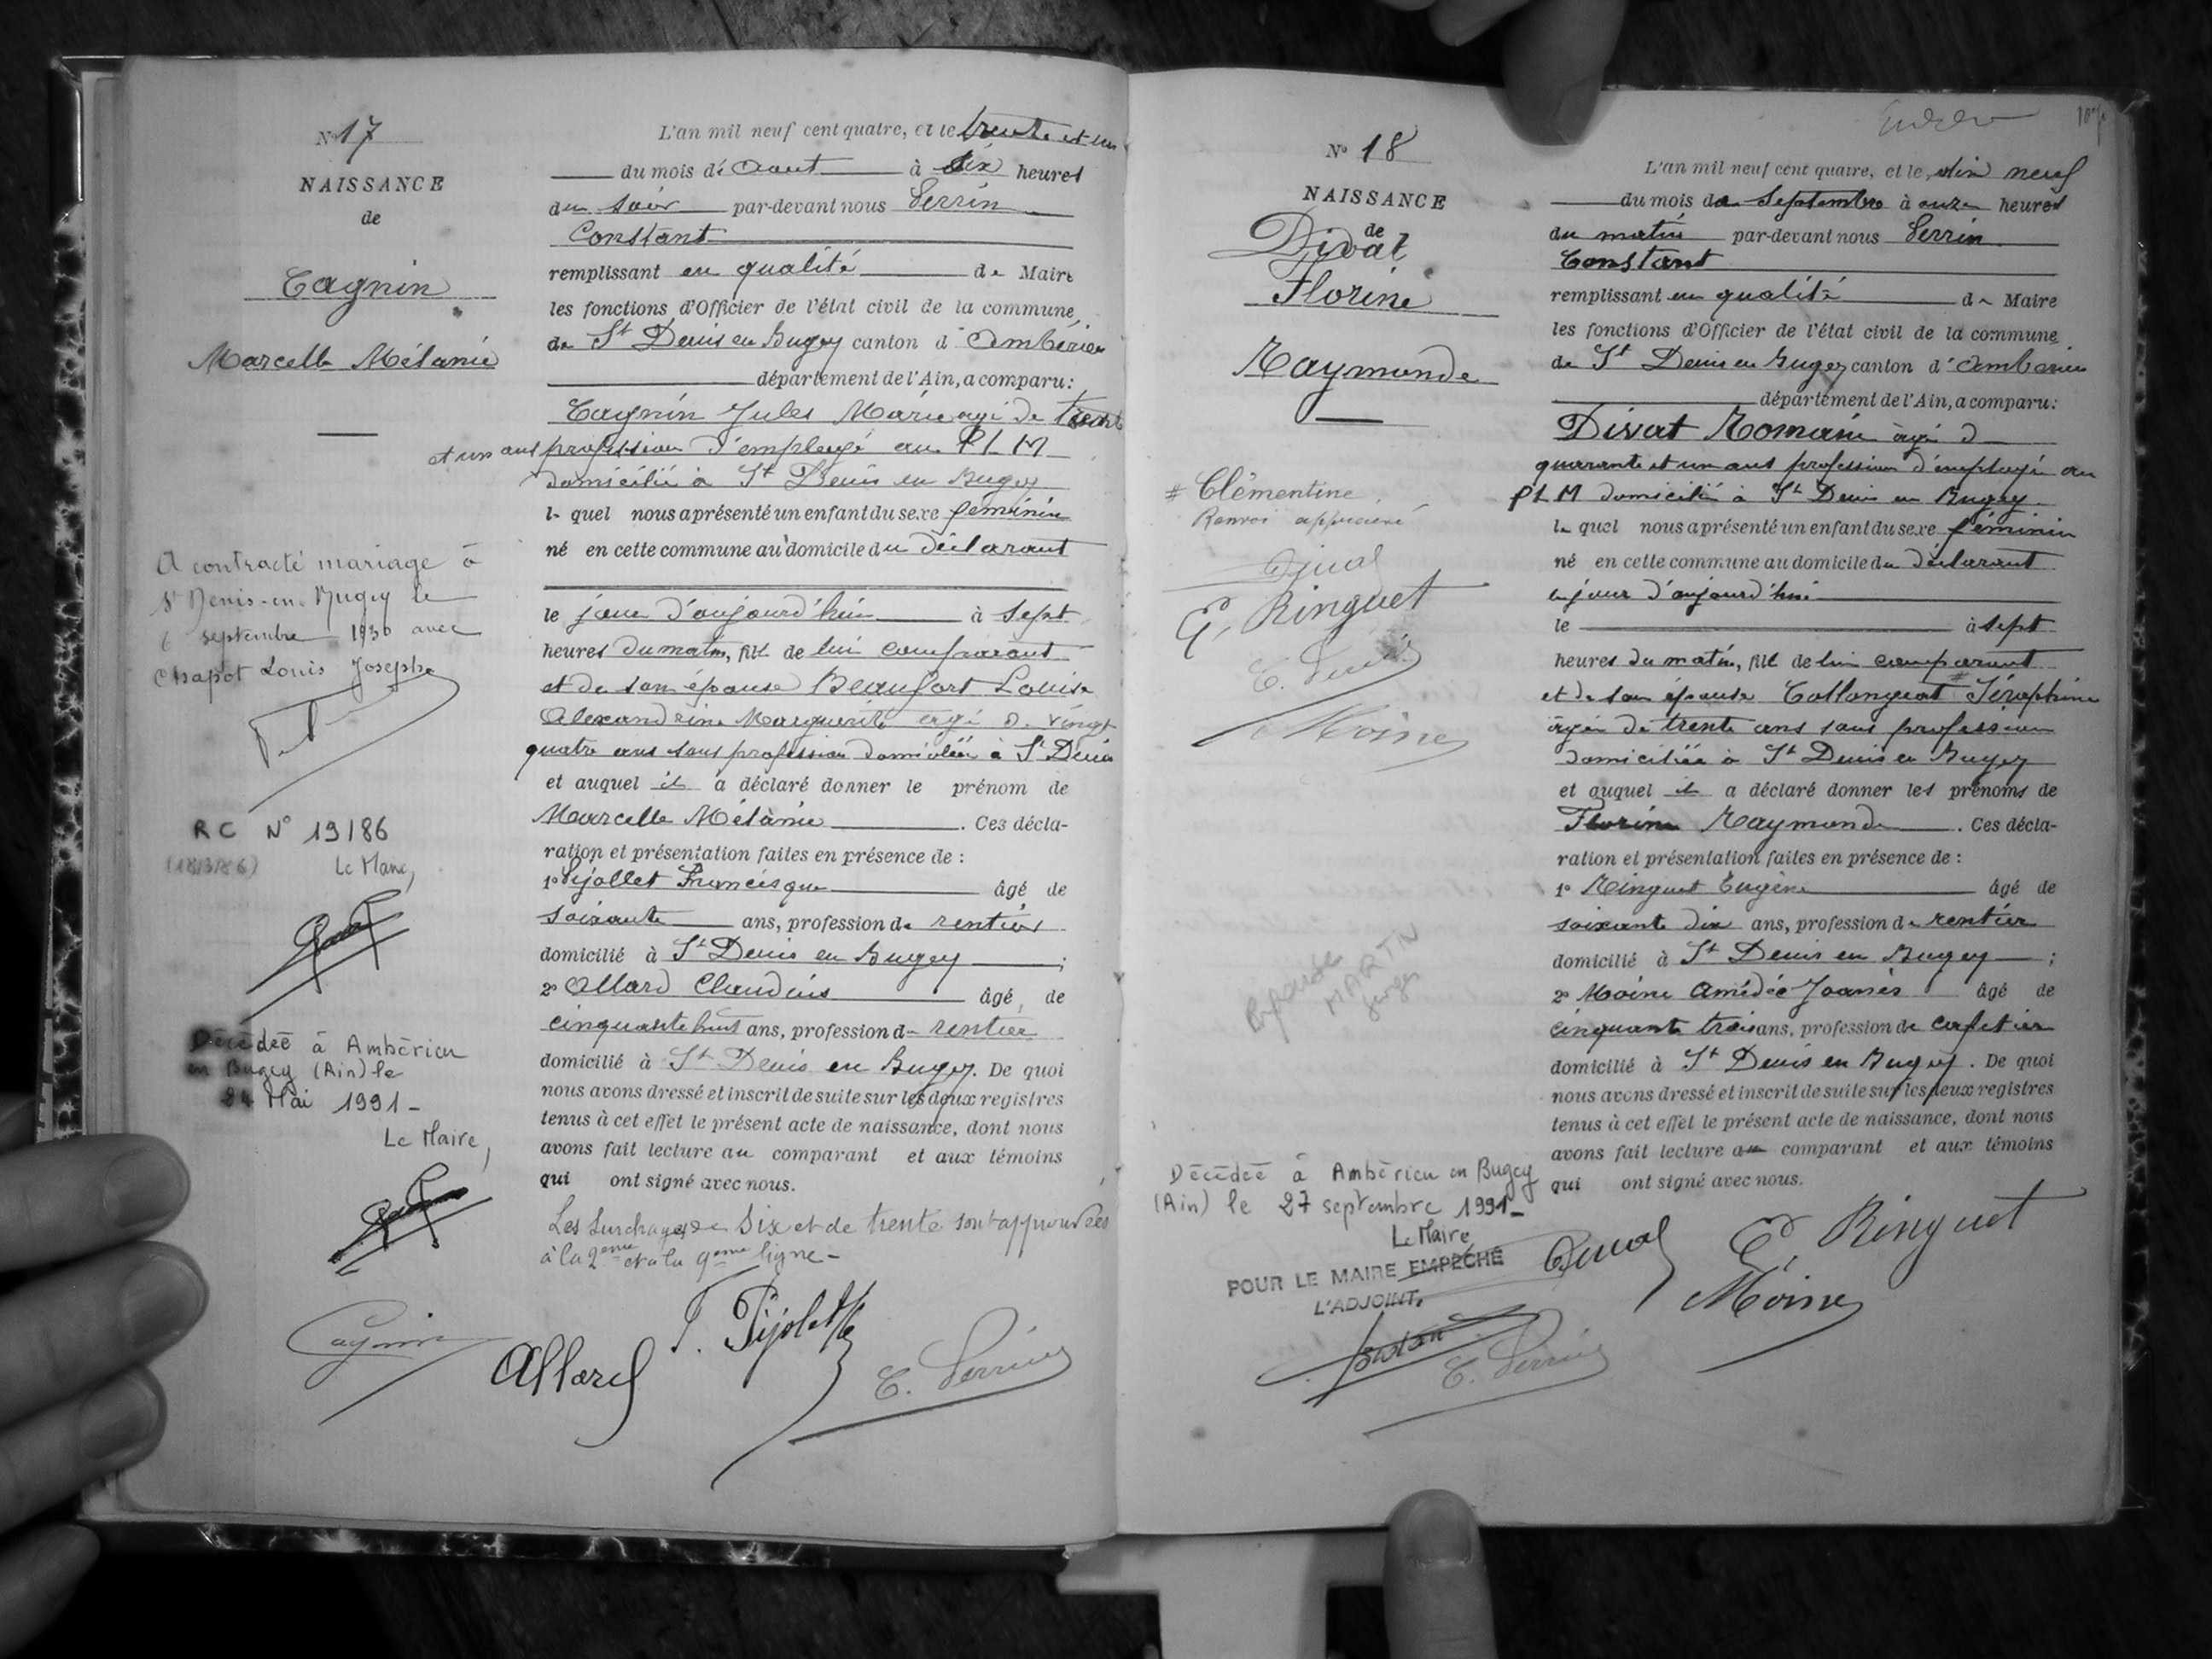 N° 17
NAISSANCE
de
Cagnin
Marcelle Mélanie
A contracté mariage à
St Denis-en-Bugey le
6 septembre 1930 avec
Chapot Louis Joseph
RC N° 19/86
(18/3/86) Le Maire,
Décédée à Ambérieu
en Bugey (Ain) le
24 Mai 1991-
Le Maire,
L'an mil neuf cent quatre, et le trente et un
du mois d'Aout à six heures
du soir par-devant nous Perrin
Constant
remplissant en qualité de Maire
les fonctions d'Officier de l'état civil de la commune
de St Denis en Bugey canton d'Ambérieu
département de l'Ain, a comparu:
Cagnin Jules Marie agé de trente
et un ans profession d'employé au PLM
domicilié à St Denis en Bugey
le quel nous a présenté un enfant du sexe féminin
né en cette commune au domicile du déclarant
le jour d'aujourd'hui à sept
heures du matin, fille de lui comparant
et de son épouse Beaufort Louise
Alexandrine Marguerite agé de vingt
quatre ans sans profession domiciliée à St Denis
et auquel il a déclaré donner le prénom de
Marcelle Mélanie. Ces décla-
ration et présentation faites en présence de :
1° Pijollet Francisque âgé de
soixante ans, profession de rentier
domicilié à St Denis en Bugey ;
2° Allard Claudius âgé de
cinquante huit ans, profession de rentier
domicilié à St Denis en Bugey. De quoi
nous avons dressé et inscrit de suite sur les deux registres
tenus à cet effet le présent acte de naissance, dont nous
avons fait lecture au comparant et aux témoins
qui ont signé avec nous.
Les surcharges de six et de trente sont approuvées
à la 2eme et à la 9eme ligne -
Cagnin
Allard
F. Pijolet
C. Perrin
N° 18
NAISSANCE
de
Divat
Florine
Raymonde
# Clémentine
Renvoi approuvé
Divat
E. Ringuet
C. Perrin
Moine
Epouse
MARTIN
Décédée à Ambérieu en Bugey
(Ain) le 27 septembre 1991-
Le Maire
POUR LE MAIRE EMPÊCHÉ
L'ADJOINT,
L'an mil neuf cent quatre, et le dix neuf
du mois de Septembre à onze heures
du matin par-devant nous Perrin
Constant
remplissant en qualité de Maire
les fonctions d'Officier de l'état civil de la commune
de St Denis en Bugey canton d'Ambérieu
département de l'Ain, a comparu:
Divat Romain âgé de
quarante et un ans profession d'employé au
PLM domicilié à St Denis en Bugey
le quel nous a présenté un enfant du sexe féminin
né en cette commune au domicile du déclarant
le jour d'aujourd'hui
le à sept
heures du matin, fille de lui comparant
et de son épouse Collonguat # Séraphine
âgée de trente ans sans profession
domiciliée à St Denis en Bugey
et auquel il a déclaré donner les prénoms de
Florine Raymonde. Ces décla-
ration et présentation faites en présence de :
1° Ringuet Eugène âgé de
soixante dix ans, profession de rentier
domicilié à St Denis en Bugey ;
2° Moine Amédée Joanès âgé de
cinquante trois ans, profession de cafetier
domicilié à St Denis en Bugey. De quoi
nous avons dressé et inscrit de suite sur les deux registres
tenus à cet effet le présent acte de naissance, dont nous
avons fait lecture au comparant et aux témoins
qui ont signé avec nous.
Divat
E. Ringuet
Moine
C. Perrin